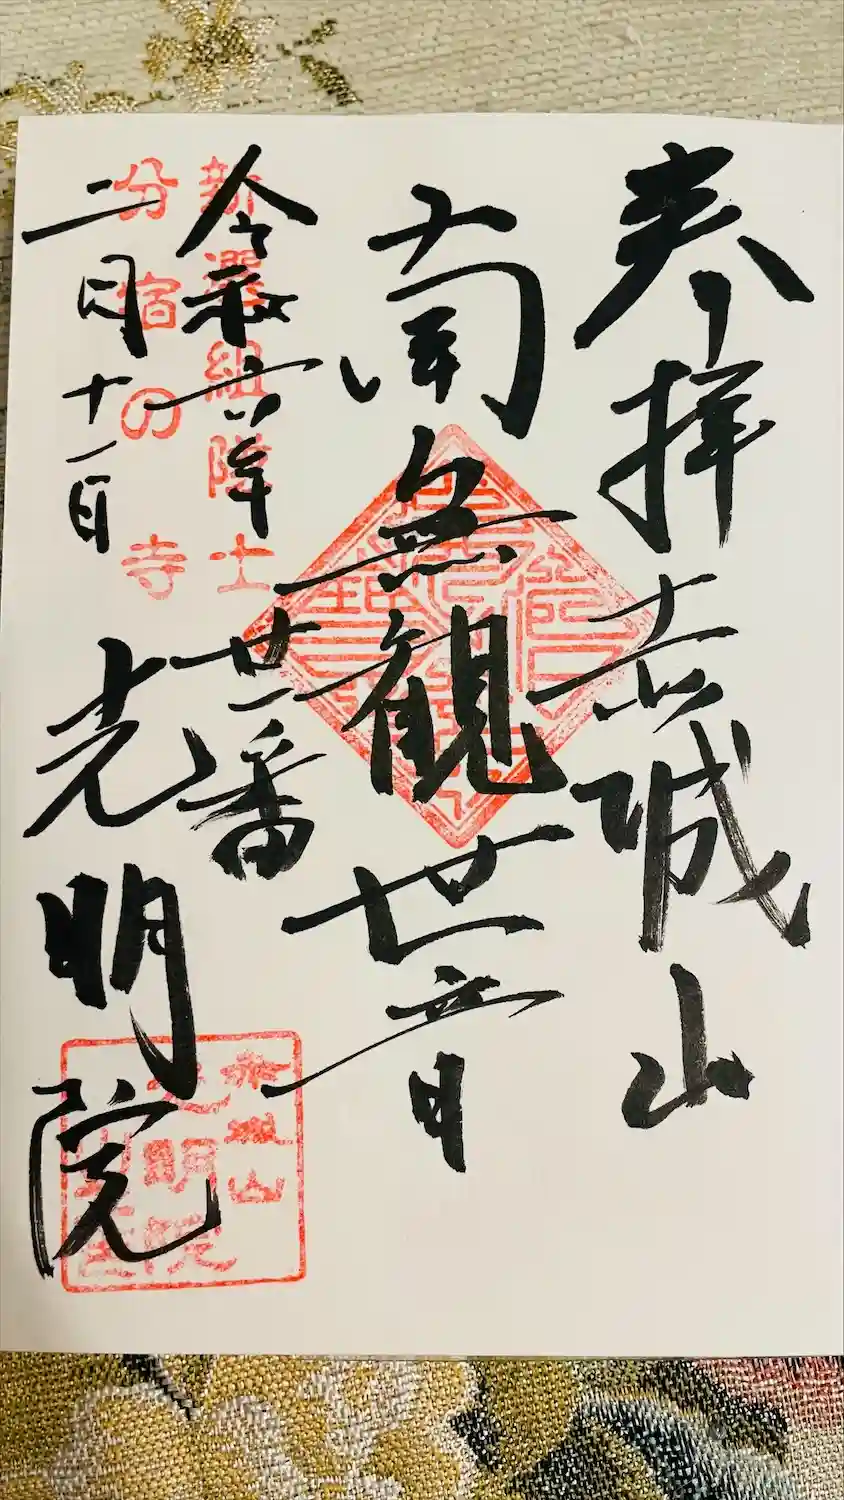 奉拝 赤城山
南無観世音
令和六年 番
新選組隊士
二月十一日 光明院
分宿の寺
赤城山
光明院